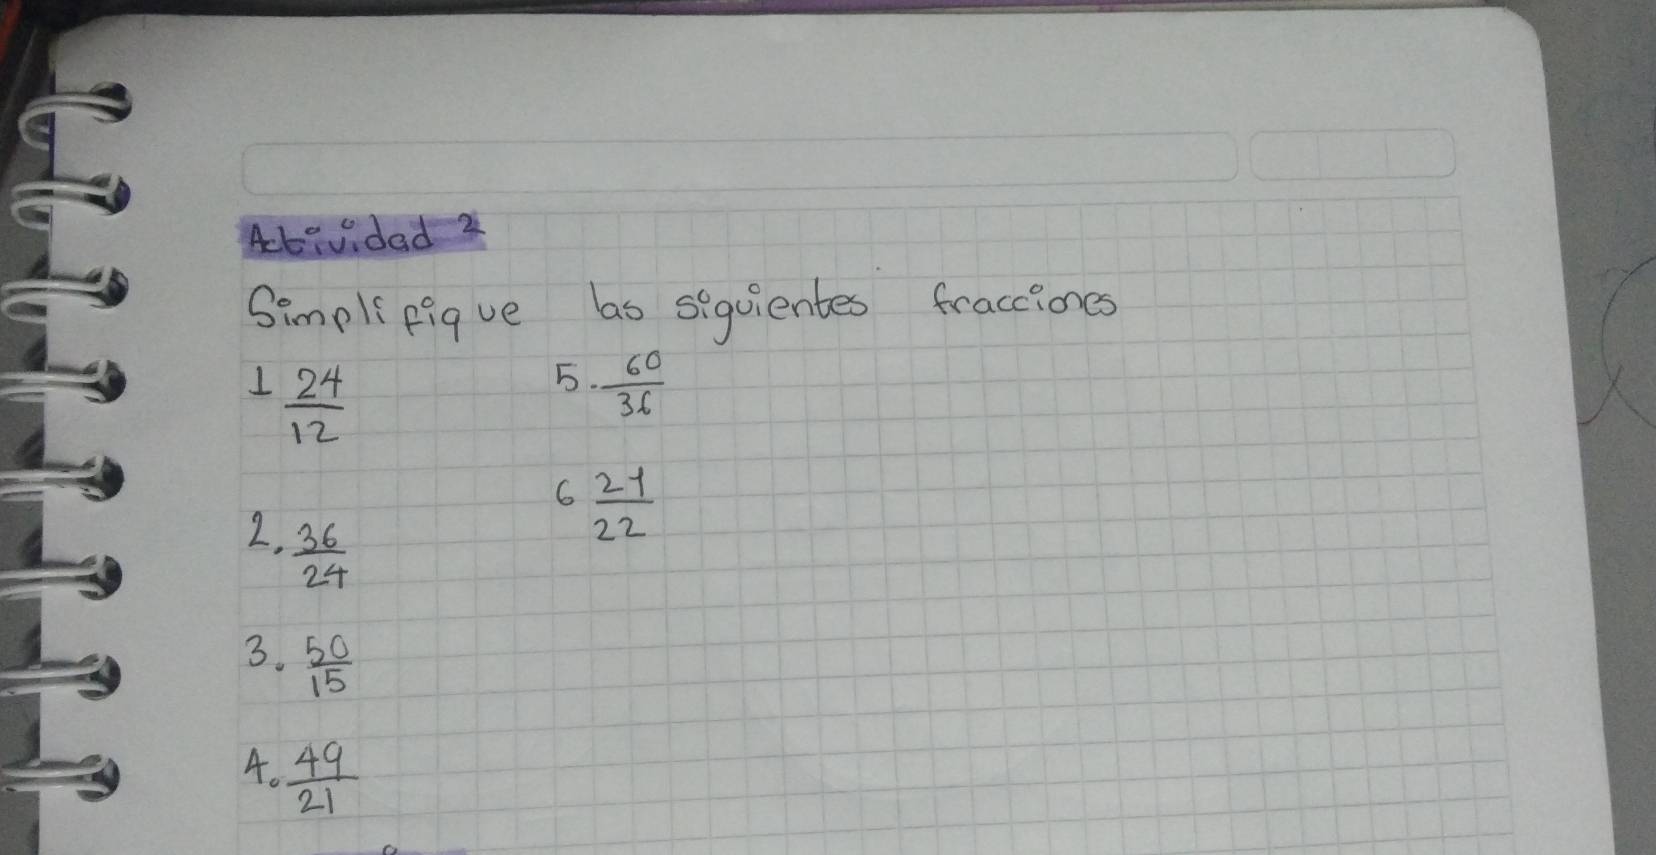 Actividad 2
Simplifique las siguientes fracciones
1 24/12
5. 60/36
6 21/22
2. 36/24
3. 50/15
4. 49/21